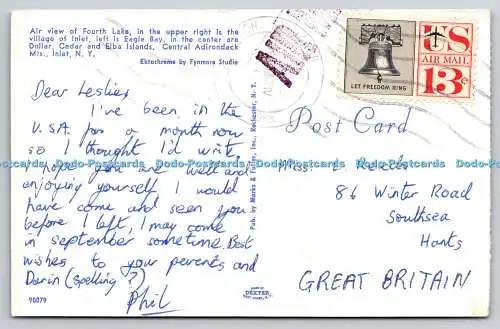 Air view of Fourth Lake, in the upper right is the
village of Inlet, left is Eagle Bay, in the center are
Dollar, Cedar and Elba Islands, Central Adirondack
Mts., Inlet, N. Y.
Ektachrome by Fynmore Studio
Dear Leslie,
I've been in the
U.S.A. for a month now
so I thought I'd write
I hope you are well and
enjoying yourself I would
have come and seen you
before I left, I may come
in september sometime. Best
wishes to your perents and
Darin (spelling?)
Phil
90079
Pub. by Manks & Fuller, Inc., Rochester, N. Y.
MADE BY
DEXTER
WEST NYACK, N.Y.
LET FREEDOM RING
US
AIR MAIL
13c
Post Card
Miss L
86 Winter Road
Southsea
Hants
GREAT BRITAIN
Dodo-Postcards Dodo-Postcards Dodo-Postcards Dodo-Postcards Dodo-Postcards